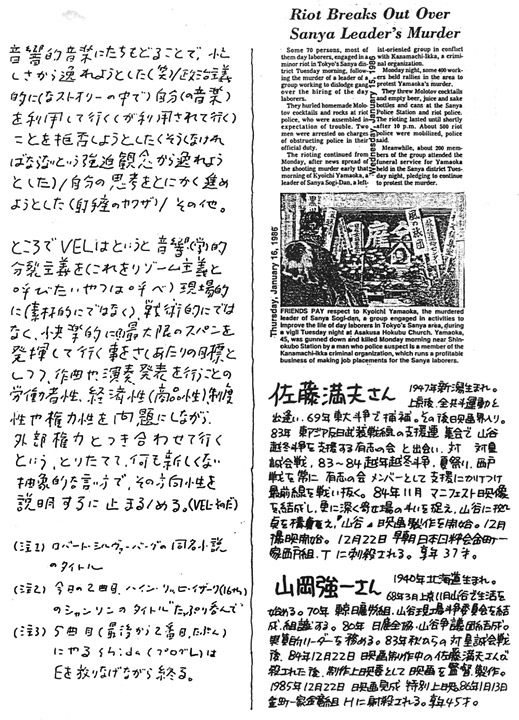 音響的音楽にたちもどることで、忙し
さから逸れようとした(笑)/政治主義
的に(なストーリーの中で)自分(の音楽)
を利用して行く(が利用されて行く)
ことを拒否しようとした(そうしなけれ
ばならないという強迫観念から逸れよう
とした)/自分の思考をとにかく進め
ようとした(射程のヤワザ)/その他。
ところでVELはというと音響(学)的
分裂主義を(これをリゾーム主義と
呼びたいやつは呼べ)現場的
に(素材的にではなく)、戦術的にでは
なく、快楽的に最大限のスパンを
発揮して行く事をさしあたりの目標と
しつつ、作曲や演奏、発表を行うことの
労働者性、経済性(商品性)、制度
性や権力性を問題にしながら、
外部権力とつき合わせて行く
という、とりたてて、何も新しくない
抽象的な言い方で、その方向性を
説明するに止まる/める。(VEL・
(注1) ロバート・シルヴァーバーグの同名小説
のタイトル
(注2) 今日の2曲目、ハインリッヒ・イザーク(16th)
のシャンソンのタイトル"たっぷり呑んで"
(注3) 5曲目(最後から2番目、たぶん)
にやる (プログレ)は
Eを放りなげながら終る。
Riot Breaks Out Over
Sanya Leader's Murder
Some 70 persons, most of
them day laborers, engaged in a
minor riot in Tokyo's Sanya dis-
trict Tuesday morning, follow-
ing the murder of a leader of a
group working to dislodge gang
over the hiring of the day
laborers.
They hurled homemade Molo-
tov cocktails and rocks at riot
police, who were assembled in
expectation of trouble. Two
men were arrested on charges
of obstructing police in their
official duty.
The rioting continued from
Monday, after news spread of
the shooting murder early that
morning of Kyoichi Yamaoka, a
leader of Sanya Sogi-Dan, a left-
Wednesday, January 15, 1986
ist-oriented group in conflict
with Kanamachi-Ikka, a crimi-
nal organization.
Monday night, some 400 work-
ers held rallies in the area to
protest Yamaoka's murder.
They threw Molotov cocktails
and empty beer, juice and sake
bottles and cans at the Sanya
Police Station and riot police.
The rioting lasted until shortly
after 10 p.m. About 500 riot
police were mobilized, police
said.
Meanwhile, about 200 mem-
bers of the group attended the
funeral service for Yamaoka
held in the Sanya district Tues-
day night, pledging to continue
to protest the murder.
Thursday, January 16, 1986
FRIENDS PAY respect to Kyoichi Yamaoka, the murdered
leader of Sanya Sogi-dan, a group engaged in activities to
improve the life of day laborers in Tokyo's Sanya area, during
a vigil Tuesday night at Asakusa Hokubu Church. Yamaoka,
45, was gunned down and killed Monday morning near Shin-
okubo Station by a man who police suspect is a member of the
Kanamachi-Ikka criminal organization, which runs a profitable
business of making job placements for the Sanya laborers.
佐藤満夫さん 1947年新潟生まれ。
上京後、全共斗運動と
出逢い、69年東大斗争で逮捕。その後映画界入り。
83年 東アジア反日武装戦線の支援連 集会で山谷
越冬斗争を支援する有志の会と出会い、対 対皇
誠会戦、83〜84越年越冬斗争、夏祭り、西戸
戦を常に 有志の会メンバーとして支援にかけつけ
最前線を戦い抜く。84年11月 マニフェスト映像
を結成し、更に深く寄せ場の を捉え、山谷に視
点を据え、"山谷"映画製作を開始。12月
撮映開始。12月22日 早朝日本国粋会金町一
家西戸組、Tに刺殺される。享年37才。
山岡強一さん 1940年北海道生まれ。
68年3月上京(山谷で生活を
始める。70年 東日雇労組、山谷現場斗争委員会を結
成、組織する。80年 日雇全協、山谷争議団結成。
実質的リーダーを務める。83年秋からの対皇誠会戦
後、84年12月22日 映画制作中の佐藤満夫さんが
殺された後、制作上映委として映画を監督、製作。
1985年12月22日 映画完成 特別上映。86年1月13日
金町一家金竜組 Hに射殺される。享年45才。